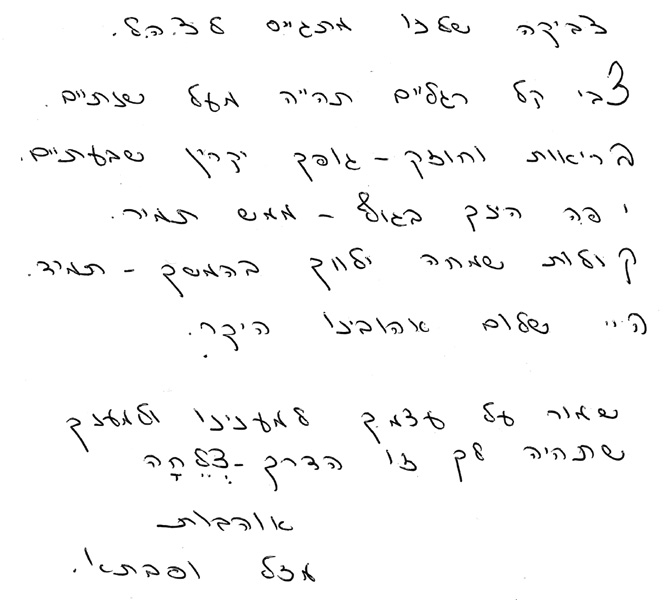 צביקה שלנו מתגייס לצ.ה.ל.
צבי קל רגליים תהייה מעל שנתיים.
בריאות וחוזק - גופך יקרין שבעתיים.
יפה הינך בגוף - ממש תמיר.
קולות שמחה ילווך בהמשך - תמיד.
היי שלום אהובינו היקר.
שמור על עצמך למעניינו ולמענך
שתהיה לך זו הדרך - צְלֵחָה
אוהבות
מזל וסבתא.